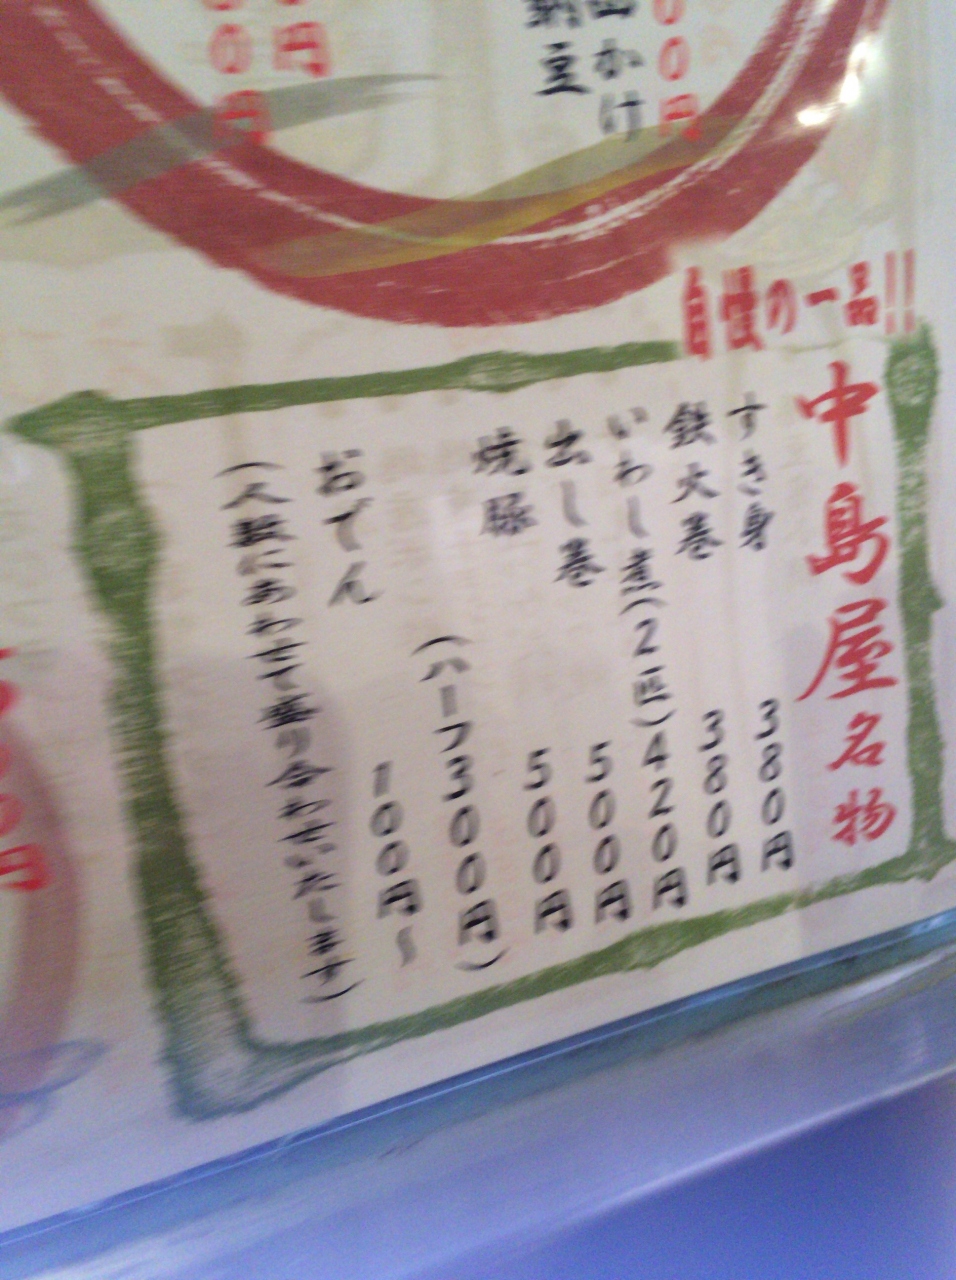 山かけ
納豆
自慢の一品!!
中島屋名物
すき身 380円
鉄火巻 380円
いわし煮(2匹)420円
出し巻 500円
焼豚 500円
(ハーフ300円)
おでん 100円~
(人数にあわせて盛り合わせいたします)